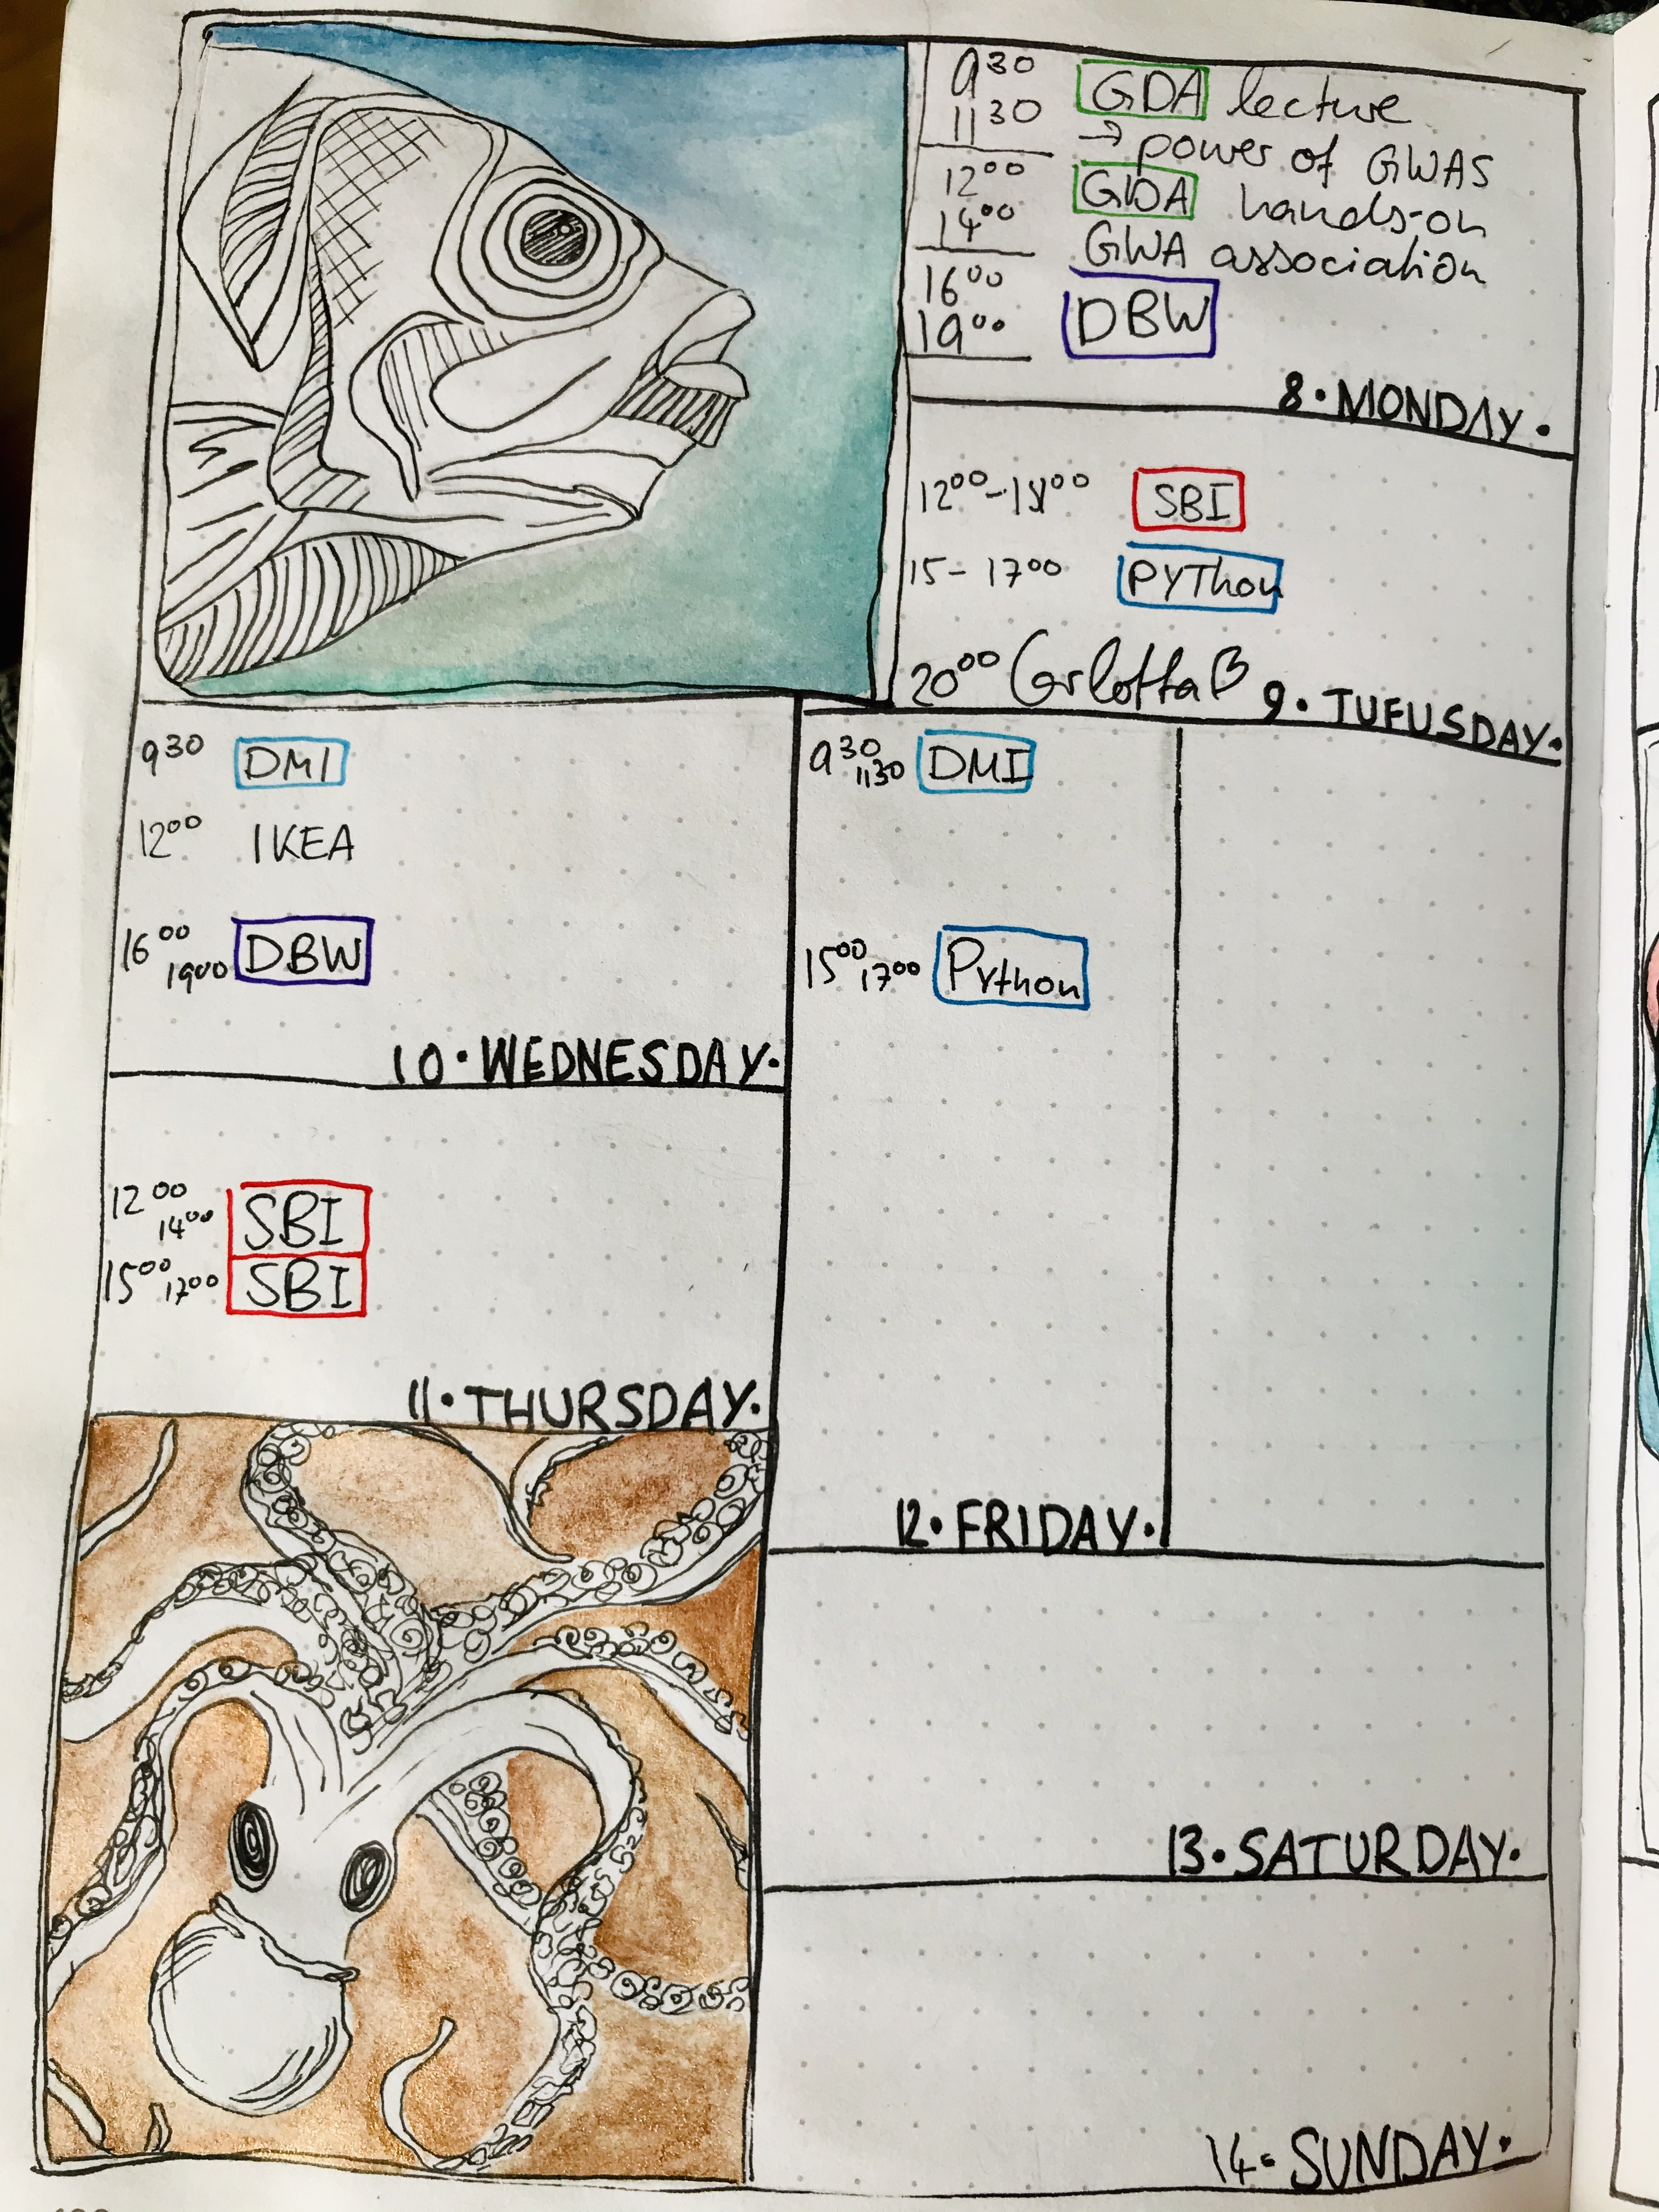 9³⁰ GDA lecture
11³⁰ → power of GWAS
12⁰⁰ GDA hands-on
14⁰⁰ GWA association
16⁰⁰
19⁰⁰ DBW
8. MONDAY.
12⁰⁰ - 14⁰⁰ SBI
15 - 17⁰⁰ PYThon
20⁰⁰
9. TUFUSDAY.
9³⁰ DMI
12⁰⁰ IKEA
16⁰⁰ 19⁰⁰ DBW
10. WEDNESDAY.
12⁰⁰ 14⁰⁰ SBI
15⁰⁰ 17⁰⁰ SBI
11. THURSDAY.
9³⁰ 11³⁰ DMI
15⁰⁰ 17⁰⁰ Python
12. FRIDAY.
13. SATURDAY.
14. SUNDAY.